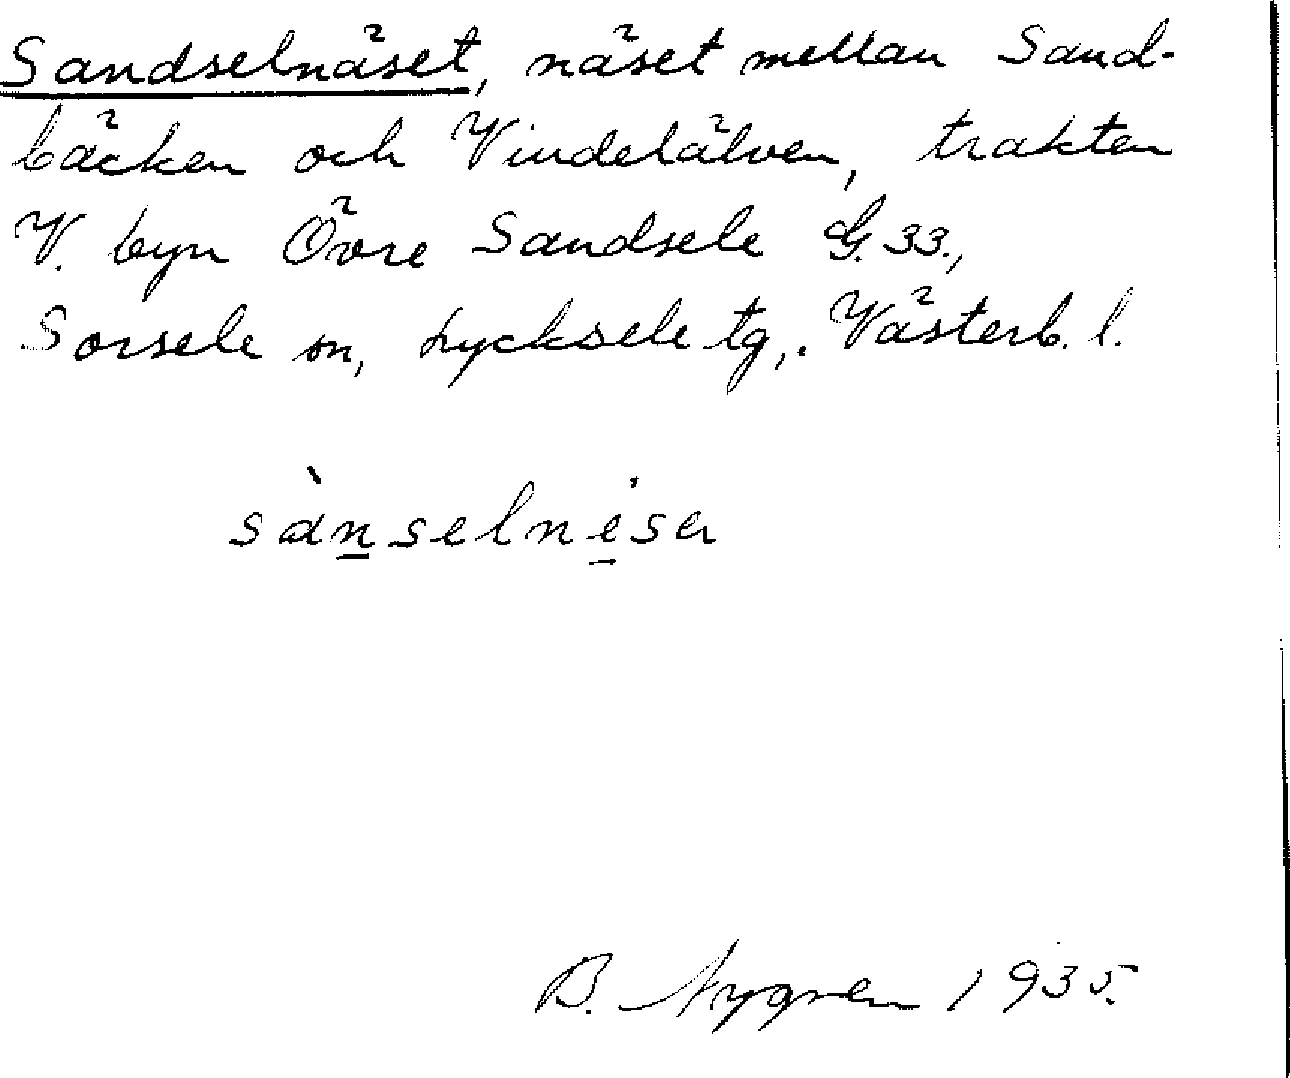 Sandselnäset, näset mellan Sand-
bäcken och Vindelälven, trakten
V. byn Övre Sandsele G. 33.,
Sorsele sn, Lycksele tg, Västerb. l.
sànselnesa
B. Nygren 1935.